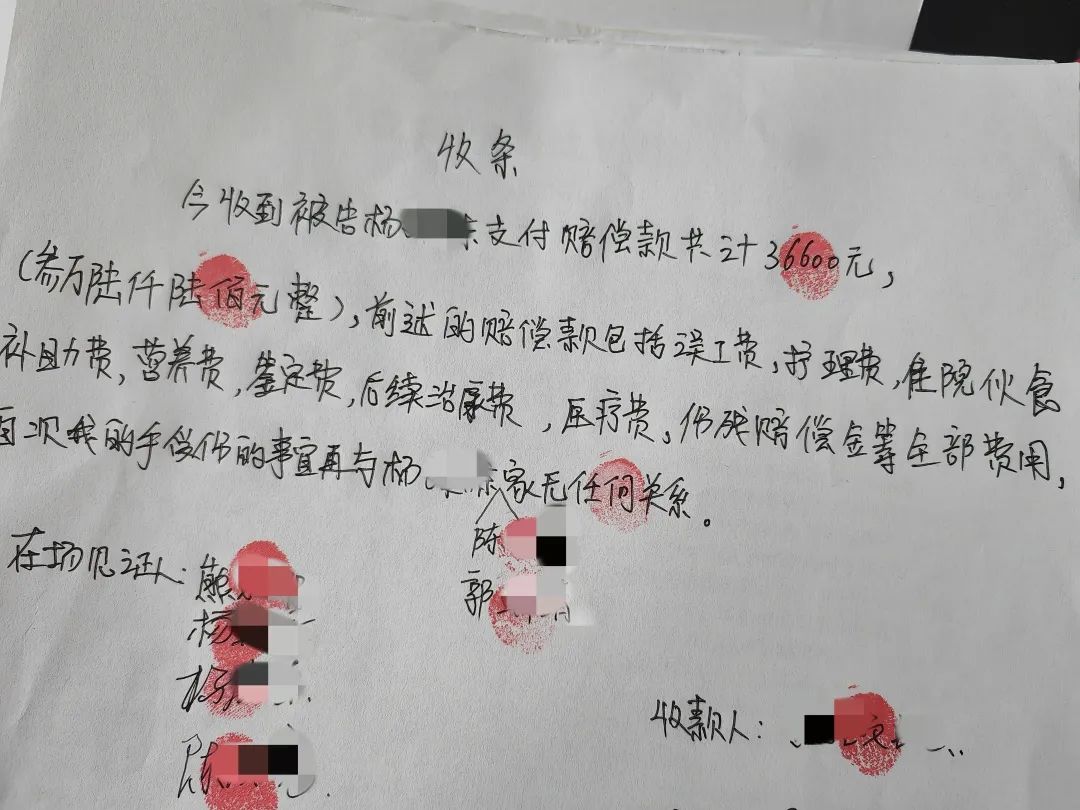 收条
今收到被告杨 支付赔偿款共计36600元，
(叁万陆仟陆佰元整)，前述的赔偿款包括误工费，护理费，住院伙食
补助费，营养费，鉴定费，后续治疗费，医疗费，伤残赔偿金等全部费用，
次我的手受伤的事宜再与杨 家无任何关系。
在场见证人：熊
陈
郭
杨
杨
陈
收款人：